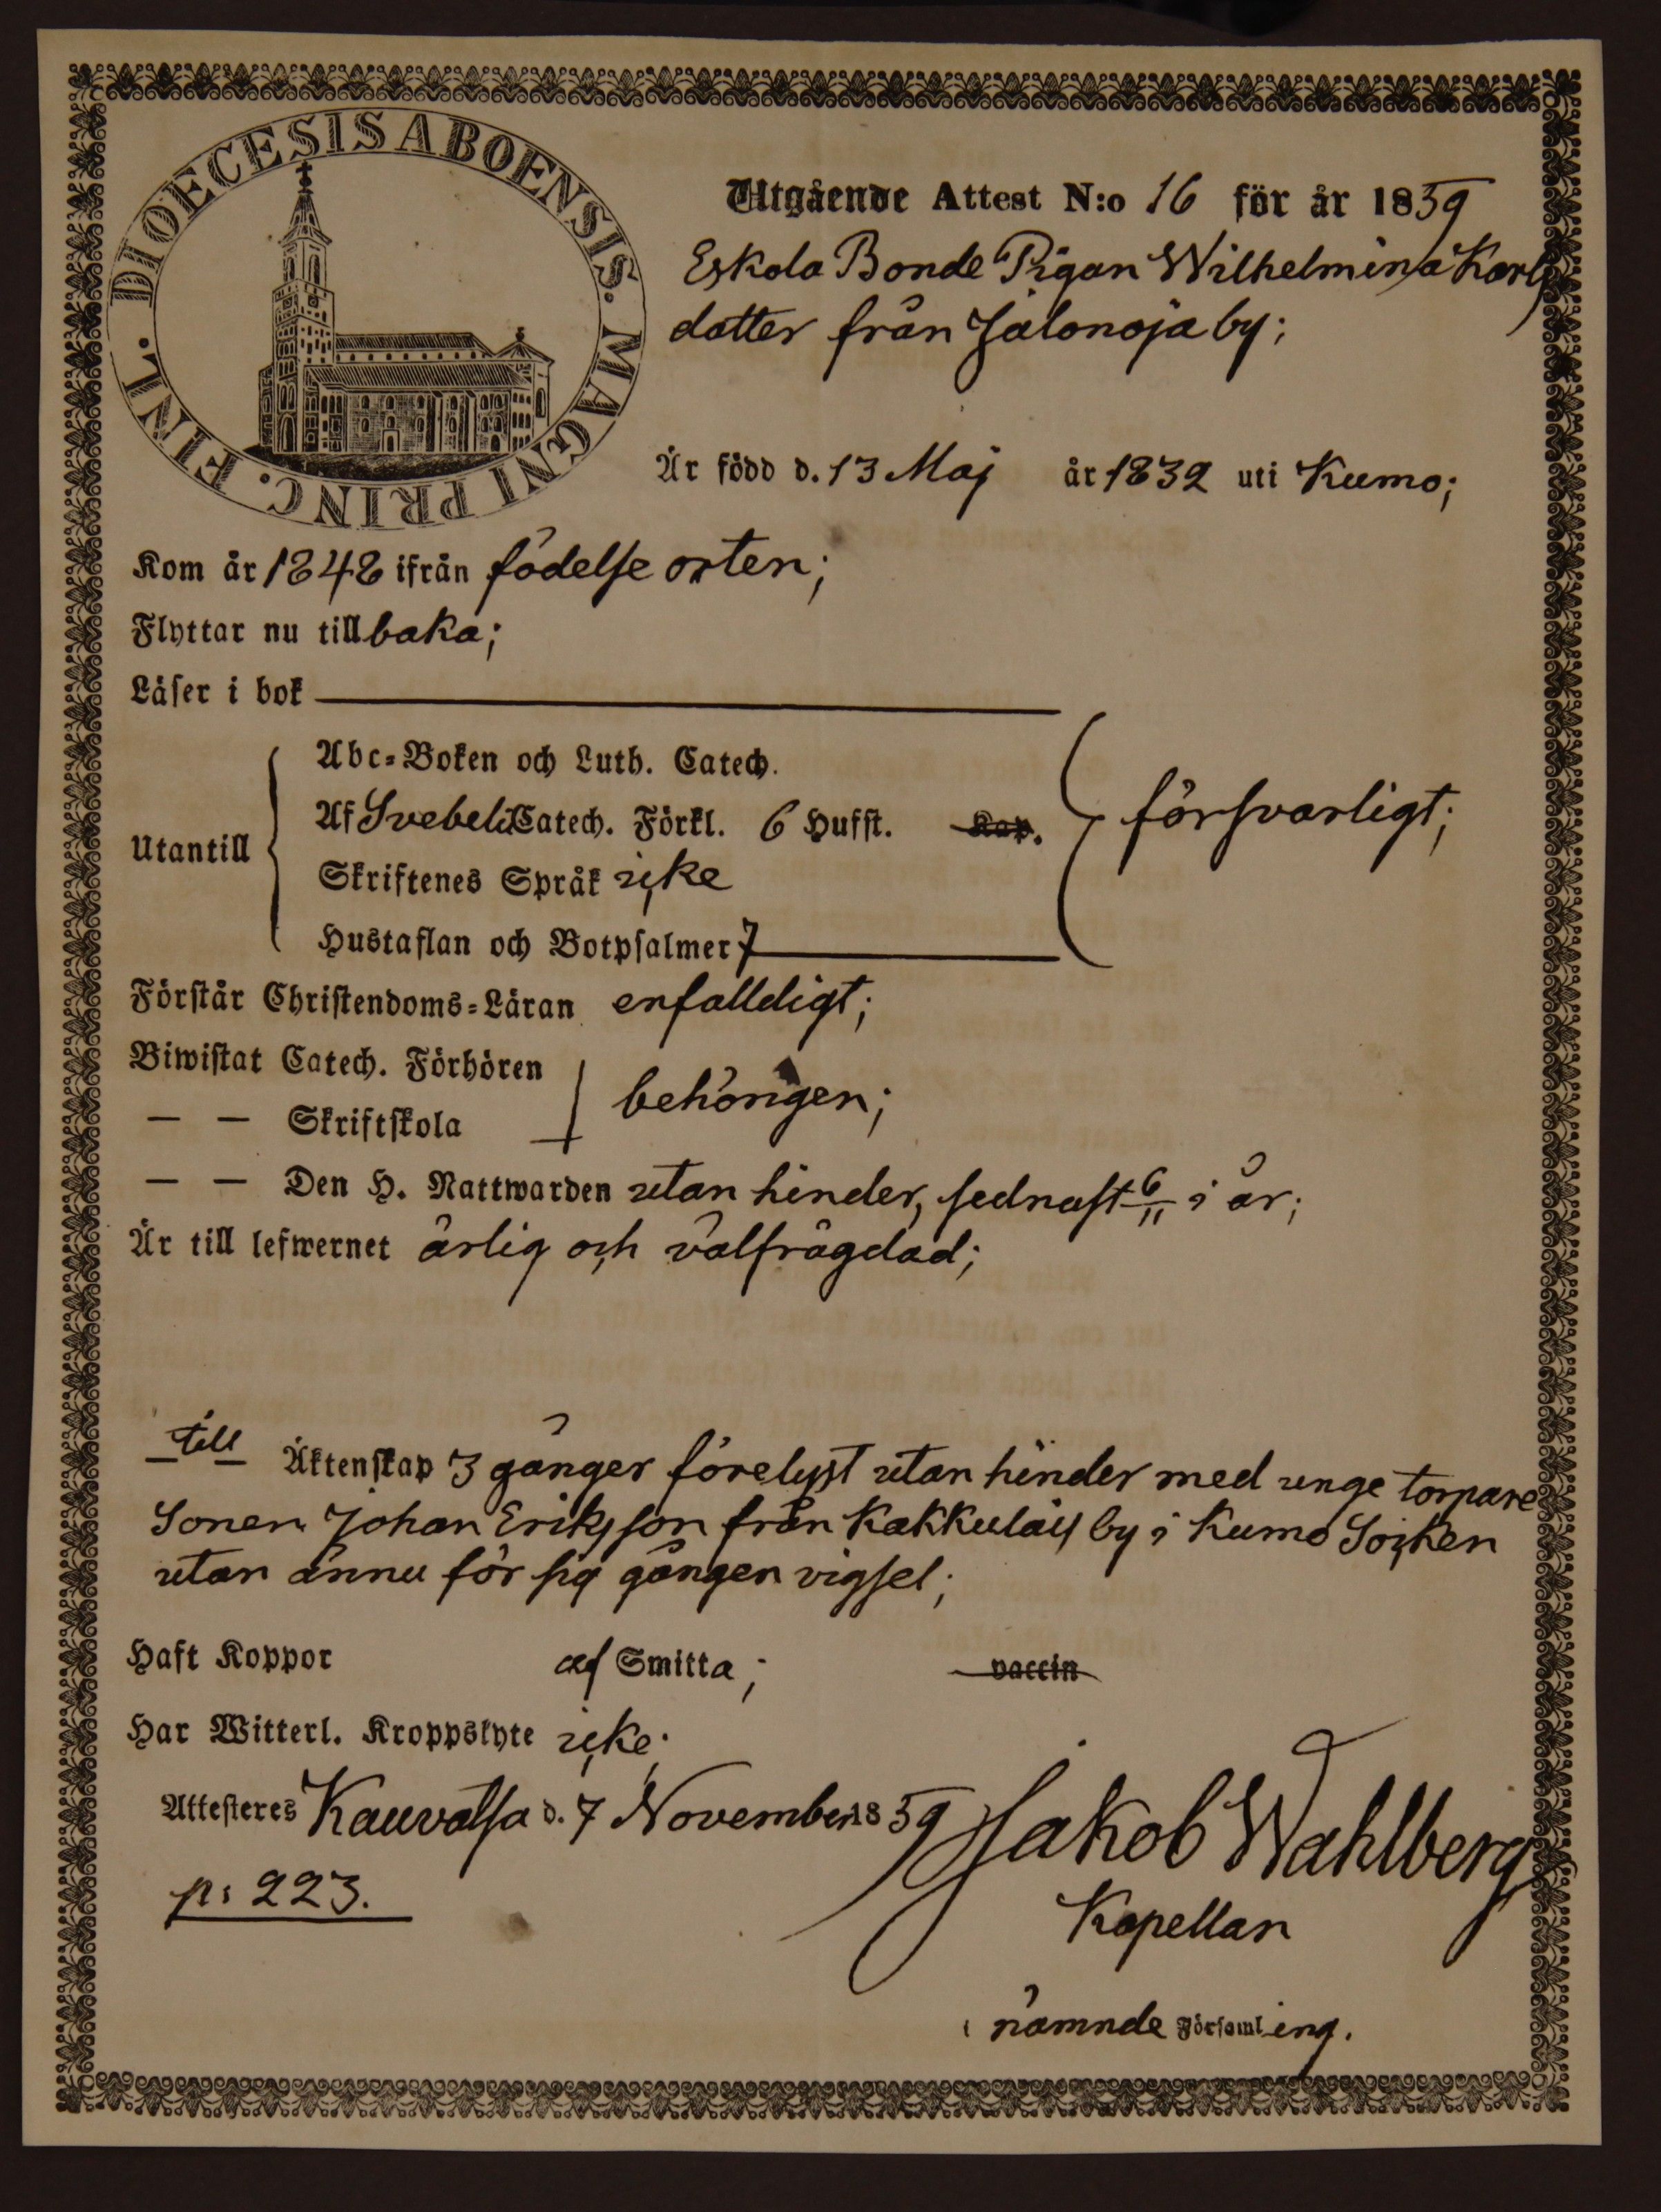 DIOECESIS ABOENSIS. MAGNI PRINC. FINL.
Utgående Attest N:o 16 för år 1859
Eskola Bonde Pigan Wilhelmina Karls
dotter från Jalonoja by;
Är född d. 13 Maj år 1832 uti Kumo;
Kom år 1848 ifrån födelse orten;
Flyttar nu tillbaka;
Läser i bok
Utantill
Abc-Boken och Luth. Catech.
Af Svebelii Catech. Förkl. 6 Hufst. Kap.
Skriftenes Språk icke
Hustaflan och Botpsalmer 7
försvarligt;
Förstår Christendoms-Läran enfalldigt;
Biwistat Catech. Förhören
— — Skriftskola
behörigen;
— — Den H. Nattwarden utan hinder, sednast 6/11 i år;
Är till lefwernet ärlig och välfrägdad;
till Äktenskap 3 gånger förelyst utan hinder med unge torpare
Sonen Johan Eriksson från Kakkulais by i Kumo Socken
utan ännu för sig gången vigsel;
Haft Koppor af Smitta; vaccin
Har Witterl. Kroppslyte icke;
Attesteres Kauvatsa d. 7 November 1859 Jakob Wahlberg
p: 223.
Kapellan
i nämnde Församling.